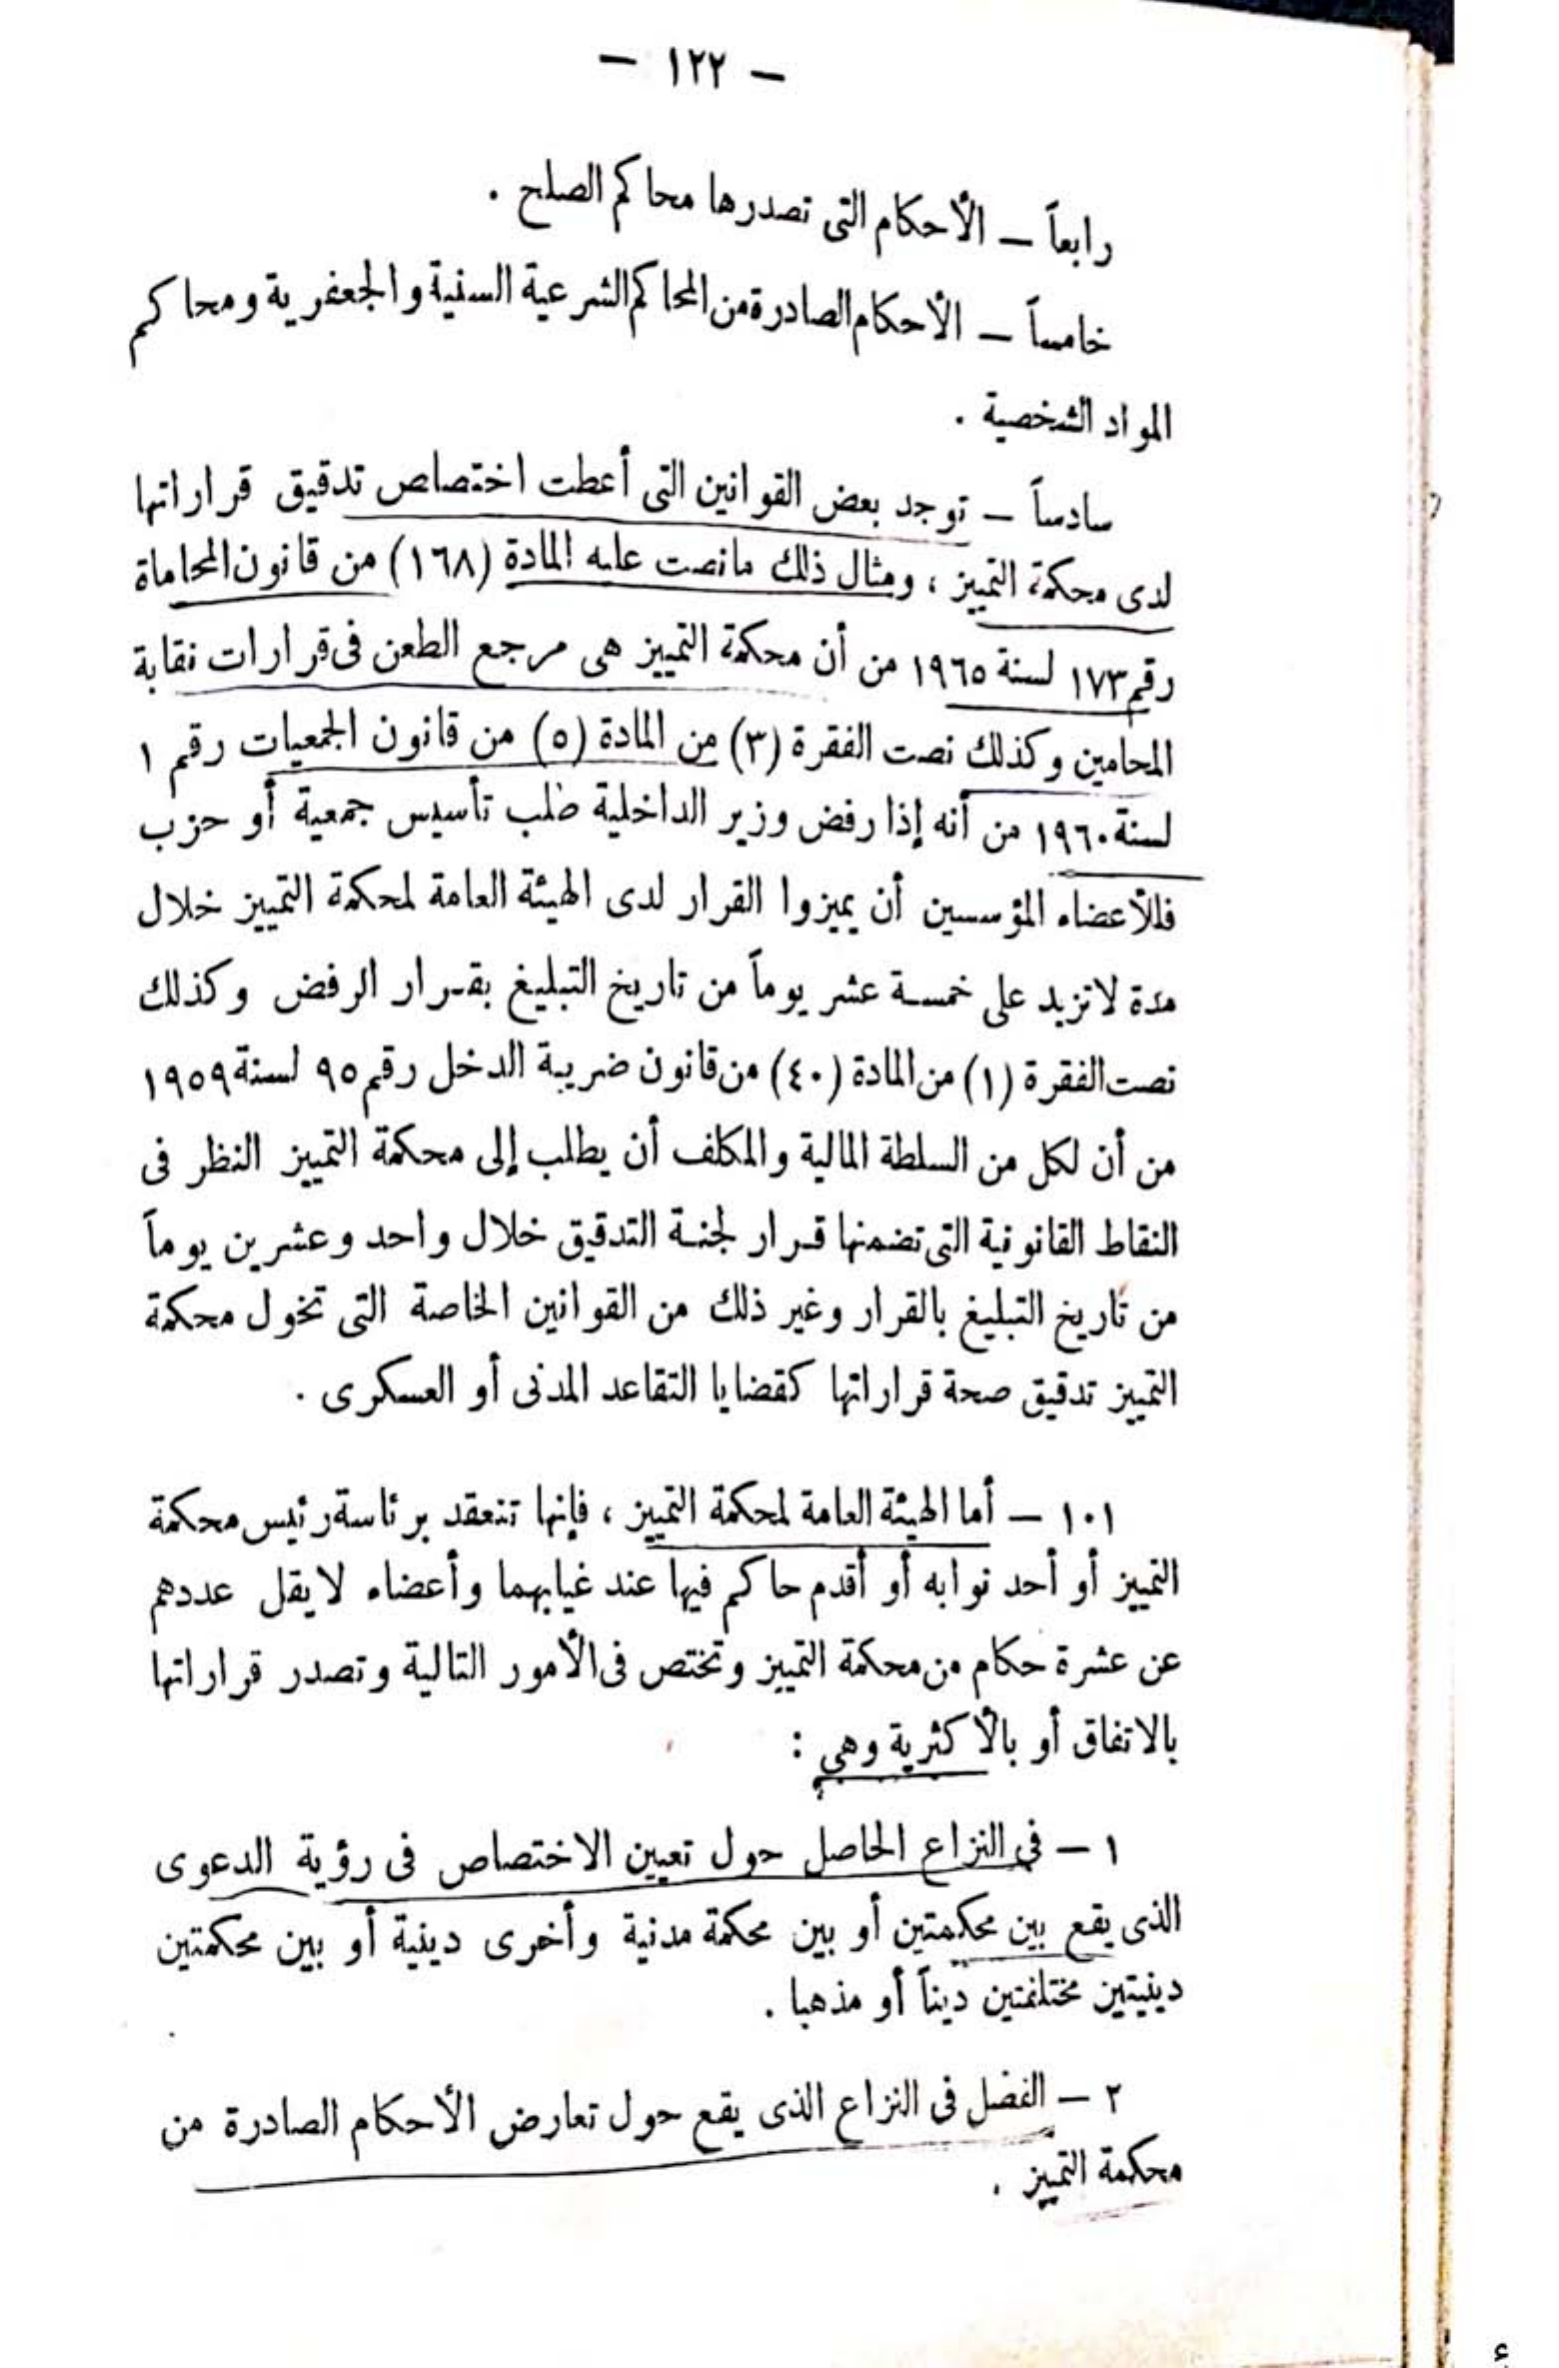 — ١٢٢ —
رابعاً — الأحكام التى تصدرها محاكم الصلح .
خامساً — الأحكام الصادرة من المحاكم الشرعية السنية والجعفرية ومحاكم
المواد الشخصية .
سادساً — توجد بعض القوانين التى أعطت اختصاص تدقيق قراراتها
لدى محكمة التمييز ، ومثال ذلك مانصت عليه المادة (١٦٨) من قانون المحاماة
رقم ١٧٣ لسنة ١٩٦٥ من أن محكمة التمييز هى مرجع الطعن فى قرارات نقابة
المحامين وكذلك نصت الفقرة (٣) من المادة (٥) من قانون الجمعيات رقم ١
لسنة ١٩٦٠ من أنه إذا رفض وزير الداخلية طلب تأسيس جمعية أو حزب
فللأعضاء المؤسسين أن يميزوا القرار لدى الهيئة العامة لمحكمة التمييز خلال
مدة لاتزيد على خمسة عشر يوماً من تاريخ التبليغ بقرار الرفض وكذلك
نصت الفقرة (١) من المادة (٤٠) من قانون ضريبة الدخل رقم ٩٥ لسنة ١٩٥٩
من أن لكل من السلطة المالية والمكلف أن يطلب إلى محكمة التمييز النظر فى
النقاط القانونية التى تضمنها قرار لجنة التدقيق خلال واحد وعشرين يوماً
من تاريخ التبليغ بالقرار وغير ذلك من القوانين الخاصة التى تخول محكمة
التمييز تدقيق صحة قراراتها كقضايا التقاعد المدنى أو العسكرى .
١٠١ — أما الهيئة العامة لمحكمة التمييز ، فإنها تنعقد برئاسة رئيس محكمة
التمييز أو أحد نوابه أو أقدم حاكم فيها عند غيابهما وأعضاء لايقل عددهم
عن عشرة حكام من محكمة التمييز وتختص فى الأمور التالية وتصدر قراراتها
بالاتفاق أو بالأكثرية وهى :
١ — فى النزاع الحاصل حول تعيين الاختصاص فى رؤية الدعوى
الذى يقع بين محكمتين أو بين محكمة مدنية وأخرى دينية أو بين محكمتين
دينيتين مختلفتين ديناً أو مذهبا .
٢ — الفصل فى النزاع الذى يقع حول تعارض الأحكام الصادرة من
محكمة التمييز .